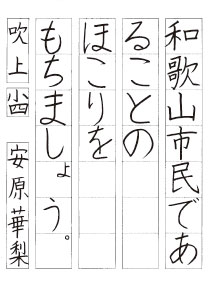 和歌山市民であ
ることの
ほこりを
もちましょう。
吹上 小四 安原華梨